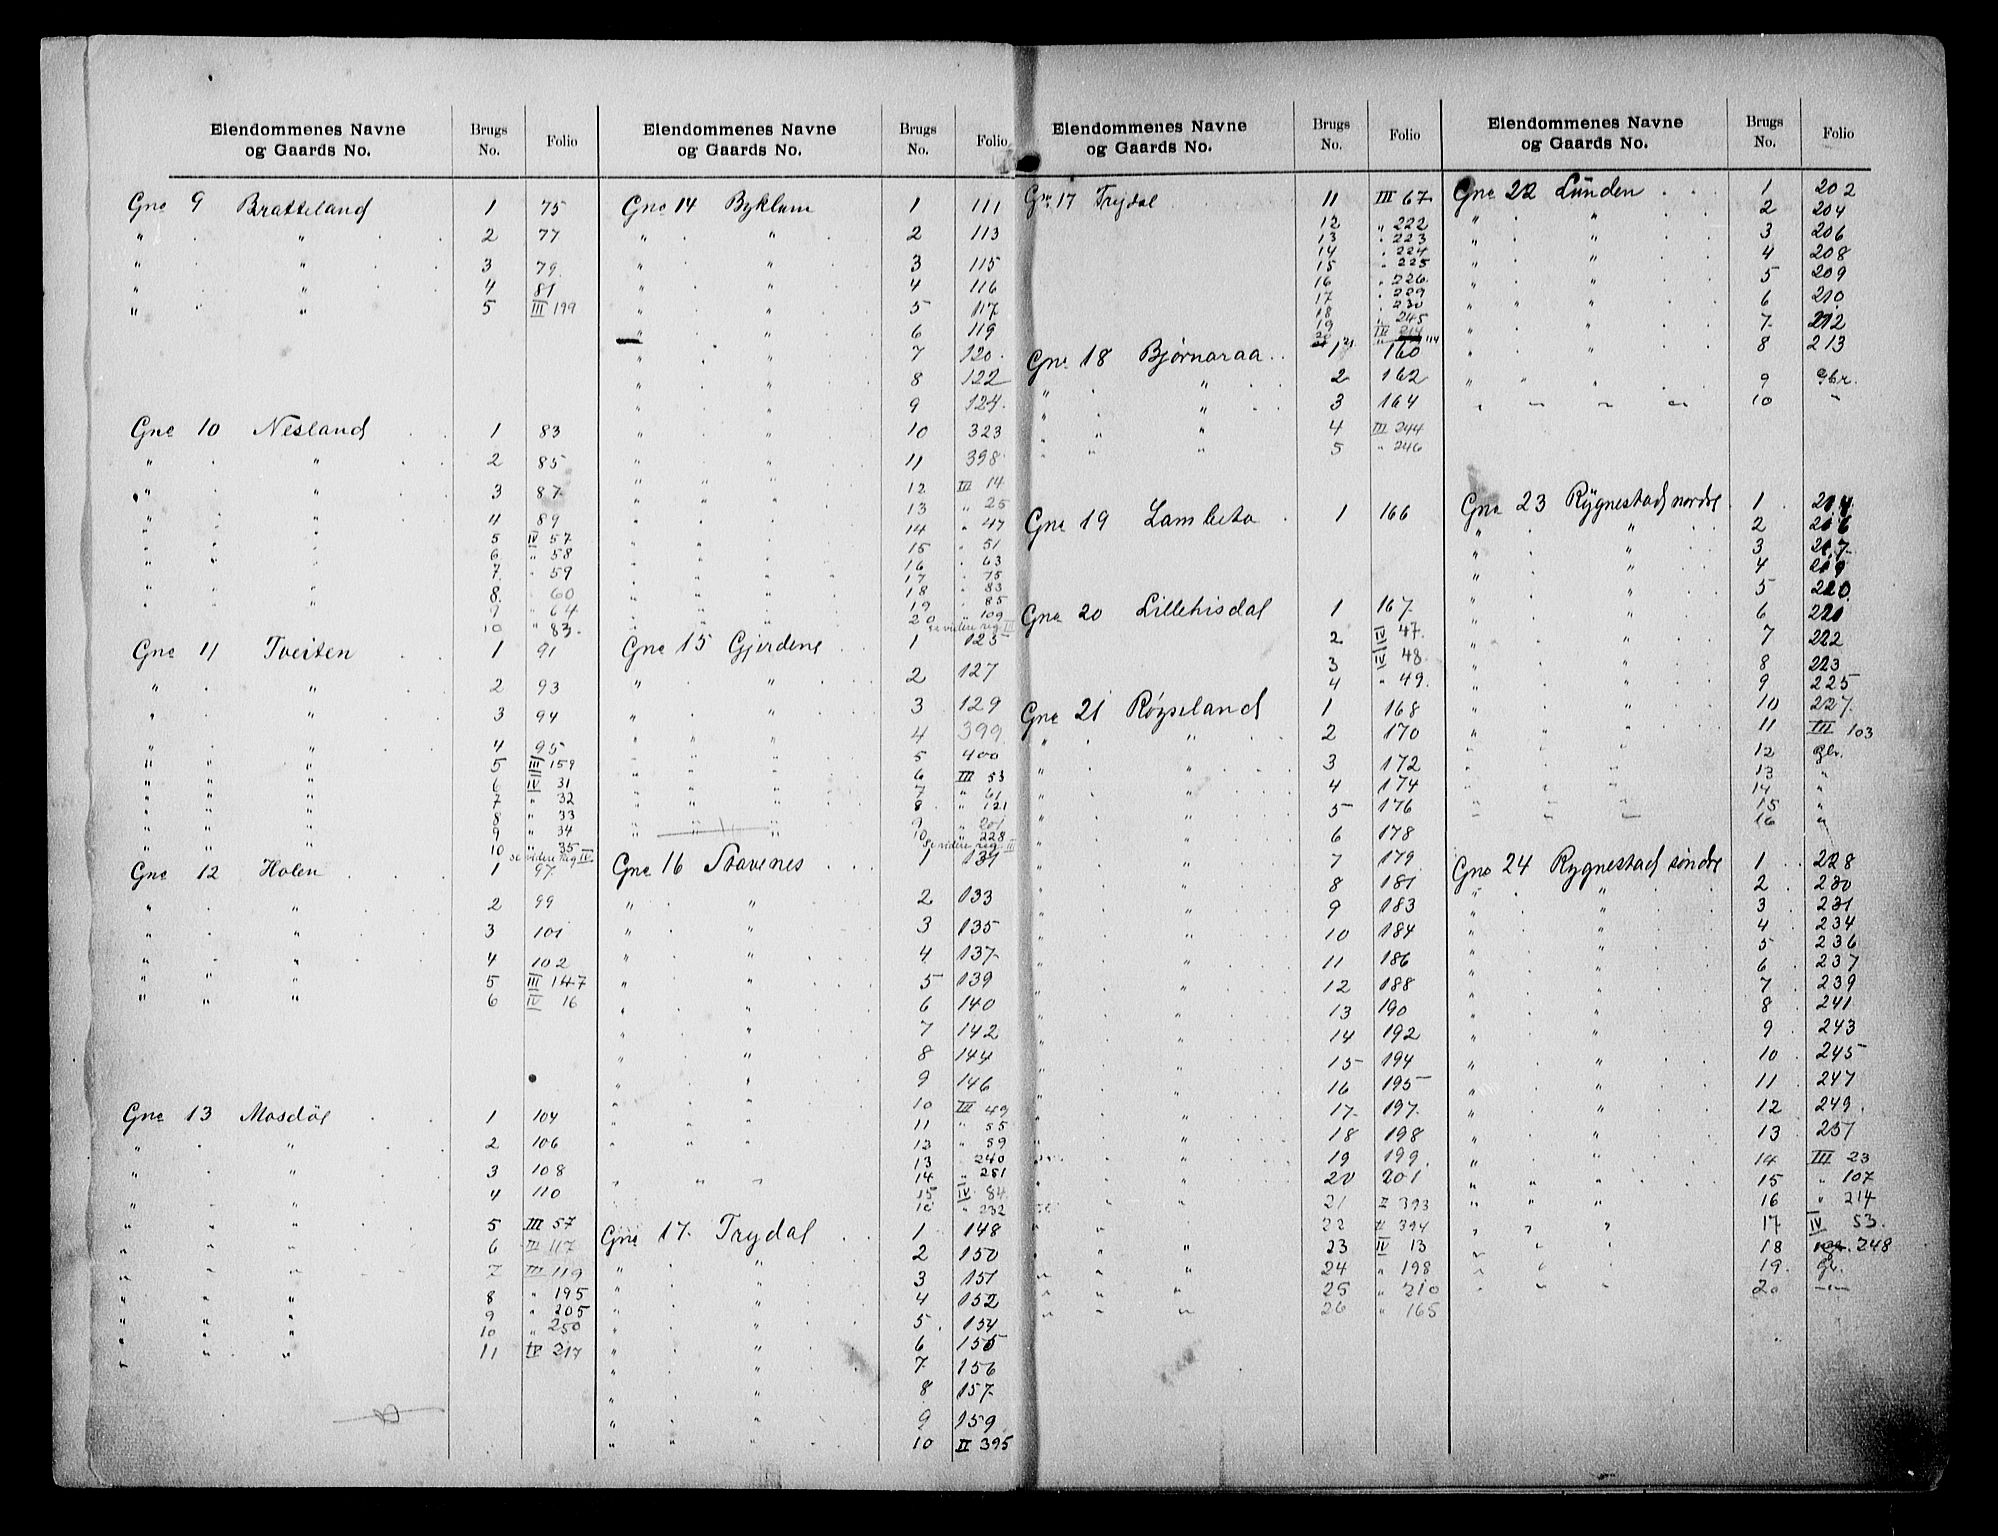 Eiendommenes Navne og Gaards No. Brugs No. Folio
Gno 9 Bratteland 1 75
" . " . . 2 77
" . " . . 3 79.
" . " . . 4 81
" " " 5 III 199
Gno 10 Nesland . . 1 83
" . " . . 2 85
" . " . . 3 87
" . " . . 4 89
" " " 5 IV 57
" " " 6 " 58
" " " 7. " 59
" " " 8. " 60
" " " 9 " 64
" " " 10 " 83.
Gno 11 Tveiten . . 1 91
" . " . . 2 93
" . " . . 3 94
" " " 4 95
" " " 5 III 159
" " " 6 IV 31
" " " 7 " 32
" " " 8 " 33
" " " 9 " 34
" " " 10 " 35
se videre reg IV
Gno 12 Holen . . 1 97
" . " . . 2 99
" . " . . 3 101
" . " . . 4 102
" " " 5 III 147
" " " 6 IV 16
Gno 13 Mosdøl . . 1 104
" . " . . 2 106
" . " . . 3 108
" . " . . 4 110
" " " 5 III 57
" " " 6 III 117
" " " 7 III 119
" " " 8 " 195
" " " 9 " 205
" " " 10 " 250
" " " 11 IV 217
Eiendommenes Navne og Gaards No. Brugs No. Folio
Gno 14 Byklum 1 111
" . " . . 2 113
" . " . . 3 115
" . " . . 4 116
" . " . . 5 117
" . " . . 6 119
" . " . . 7 120.
" . " . . 8 122
" . " . . 9 124.
" . " . . 10 323
" . " . . 11 398
" " " 12 III 14
" " " 13 " 25
" " " 14 " 47
" " " 15 " 51
" " " 16 " 63
" " " 17 " 75
" " " 18 " 83
" " " 19 " 85
" " " 20 " 109
se videre reg III
Gno 15 Gjerdene . . 1 125
" . " . . 2 127
" . " . . 3 129
" " " 4 399
" " " 5 400
" " " 6 III 53
" " " 7 " 61
" " " 8 " 121
" " " 9 " 201
" " " 10 " 228
se videre reg III
Gno 16 Stavenes . . 1 131
" . " . . 2 133
" . " . . 3 135
" . " . . 4 137
" . " . . 5 139
" . " . . 6 140
" . " . . 7 142
" . " . . 8 144
" . " . . 9 146
" " " 10 III 49
" " " 11 " 55
" " " 12 " 59
13 " 240
14 " 251
" " " 15 IV 84.
16 " 232
Gno 17. Trydal . . 1 148
" . " . . 2 150
" . " . . 3 151
" . " . . 4 152
" . " . . 5. 154
" . " . . 6 155
" . " . . 7. 156
" . " . . 8 157
" . " . . 9 159
" " " . . 10 II 395
Eiendommenes Navne og Gaards No. Brugs No. Folio
Gno 17 Trydal 11 III 67
12 " 222
13 " 223
14 " 224
15 " 225
16 " 226
17 " 229
18 " 230
19 " 245
20 IV 214
21 " 114
Gno 18 Bjørnaraa . . 1 160
" . " . . 2 162
" . " . . 3 164
" " " 4 III 244
" " " 5 " 246
Gno 19 . 1 166
Gno 20 Lillehisdal 1 167.
2 IV 47.
3 IV 48.
4 " 49.
Gno 21 Røyseland 1 168
" . " . . 2 170
" . " . . 3 172
" . " . . 4 174
" . " . . 5 176
" . " . . 6 178
" . " . . 7 179
" . " . . 8 181
" . " . . 9 183
" . " . . 10 184
" . " . . 11 186
" . " . . 12 188
" . " . . 13 190
" . " . . 14 192
" . " . . 15 194
" . " . . 16 195
" . " . . 17. 197.
" . " . . 18 198
" . " . . 19 199.
" . " . . 20 201
" " " 21 II 393
" " " 22 II 394
" " " 23 IV 13
" " " 24 " 198
" " " 25 " 210
" " " 26 " 165
Eiendommenes Navne og Gaards No. Brugs No. Folio
Gno 22 Lunden . . . 1 202
" . " . . 2 204
" . " . . 3 206
" . " . . 4 208
" . " . . 5 209
" . " . . 6 210
" . " . . 7. 212
" . " . . 8 213
" " " . . 9 gbr.
" " " " 10 "
Gno 23 Rygnestad nordre . 1 . 214
" . " . . 2 216
" . " . . 3 217
" . " . . 4 219
" . " . . 5 220.
" . " . . 6 221
" . " . . 7 222
" . " . . 8 223
" . " . . 9 225
" . " . . 10 227.
" . " . . 11 III 103
" " " 12 gbr.
" " " 13 "
14 "
" " " 15 "
16 "
Gno 24 Rygnestad søndre 1 . . 228
" . " . 2 . 230
" . " . 3 . 231
" . " . 4 . 234
" . " . 5 . 236
" . " . 6 . 237
" . " . 7 . 239
" . " . 8 . 241
" . " . 9 . 243
" . " . 10 . 245
" . " . 11 . 247
" . " . 12 249.
" . " . 13 . 251
" . " . 14 III 23
" " " 15 " 107
" " " 16 " 214
" " " 17 IV 53.
" " " 18 248
" " " 19. gbr.
" " " 20 "